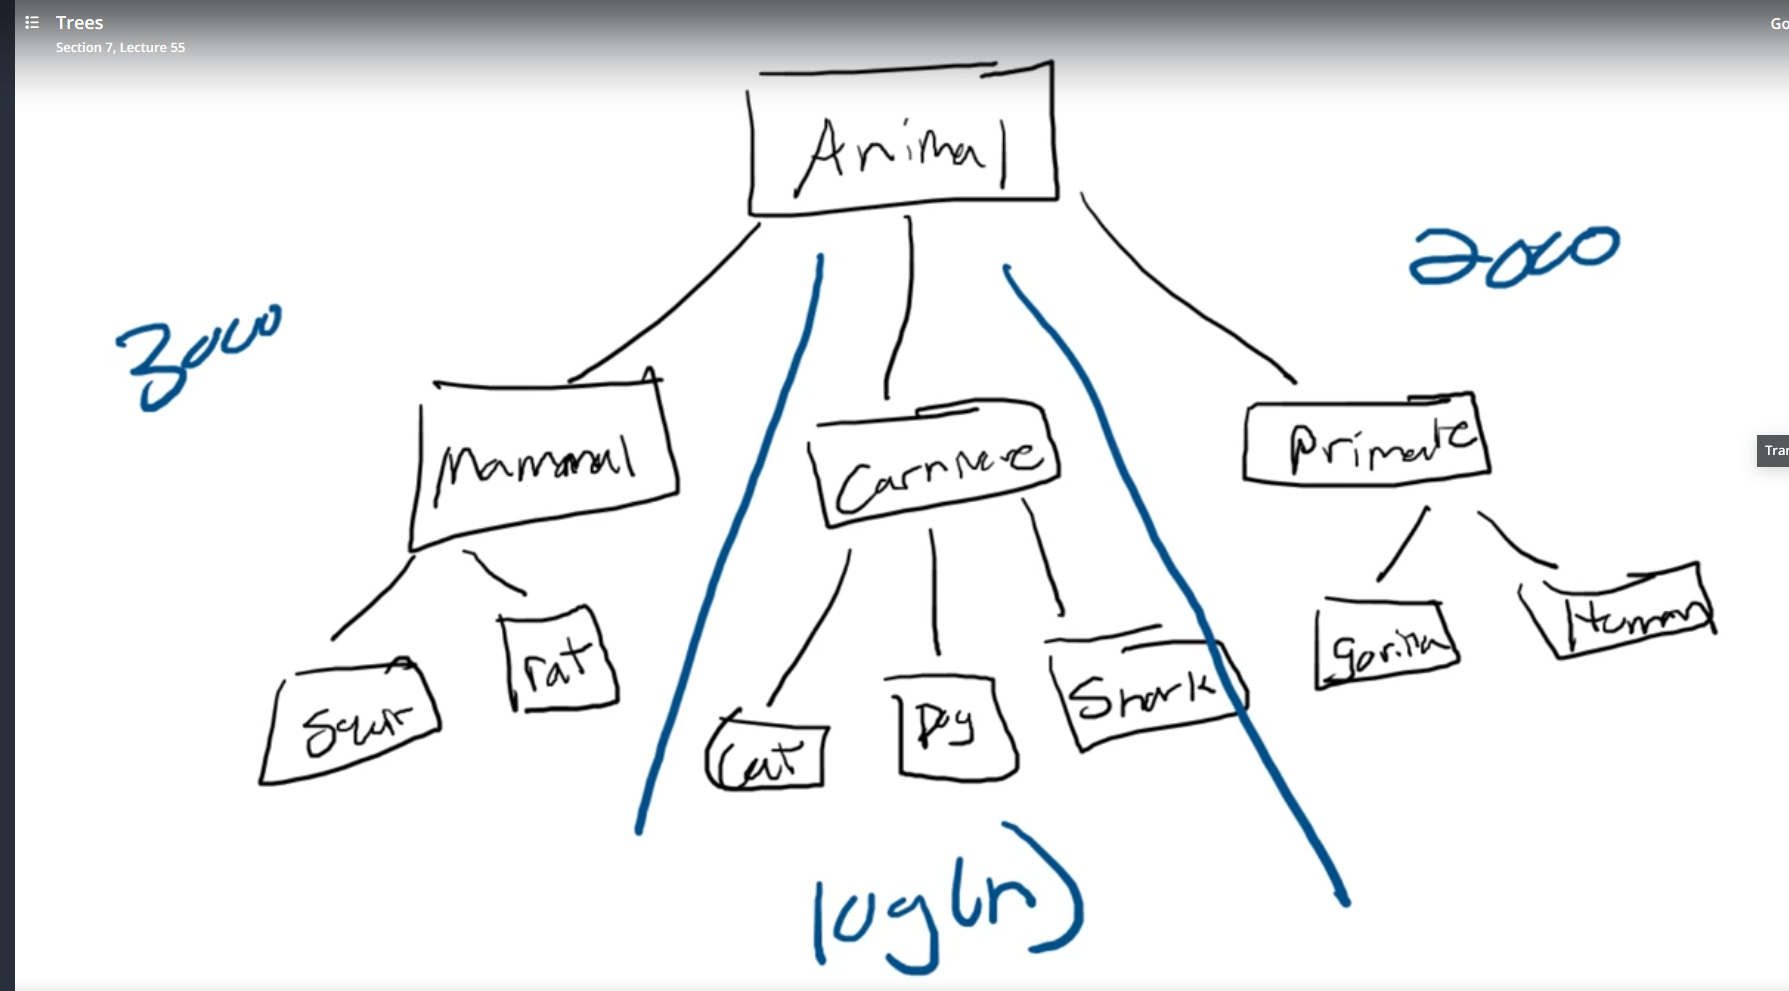 Trees
Go
Section 7, Lecture 55
Animal
2000
3000
Mammal
Carnivore
Primate
Tran
Squir
rat
Cat
Dog
Shark
gorilla
Human
log(n)